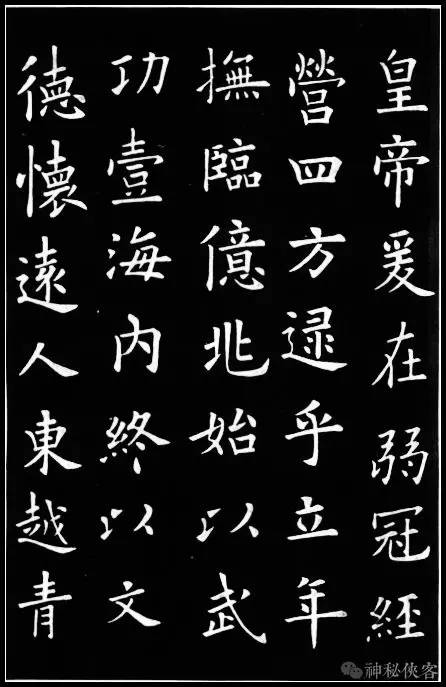 皇帝爰在弱冠經
營四方逮乎立年
撫臨億兆始以武
功壹海內終以文
德懷遠人東越青
神秘俠客